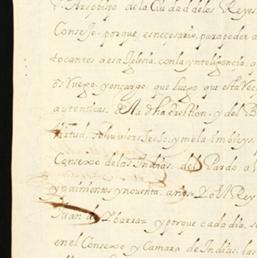 Arçobispo de la Ciudad de los Reyes
Consejo, porque es necesario, para poder a
tocantes a essa Iglesia, con la ynteligencia, q
os ruego, y encargo, que luego que esta Vea
autenticas, de la dha erection, y del B
tud, se huviere hecho, y me la imbieys
Consexo de las Indias, del Pardo, a V
y quinientos y nouenta, años, Yo el Rey
Juan de Ybarra, y porque cada dia, se
en el Consexo y Camara de Indias, las